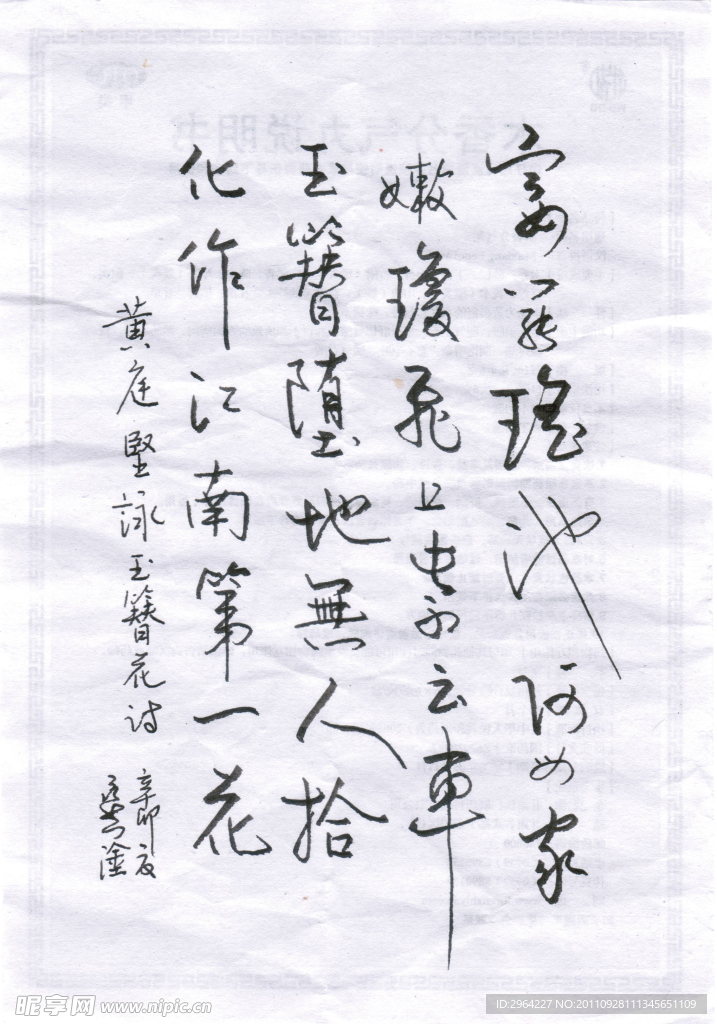 宴罷瑤池阿母家
嫩瓊飛上紫云車
玉簪墮地無人拾
化作江南第一花
黄庭堅詠玉簪花诗
辛卯夏
昵享网 www.nipic.cn
ID:2964227 NO:20110928111345651109